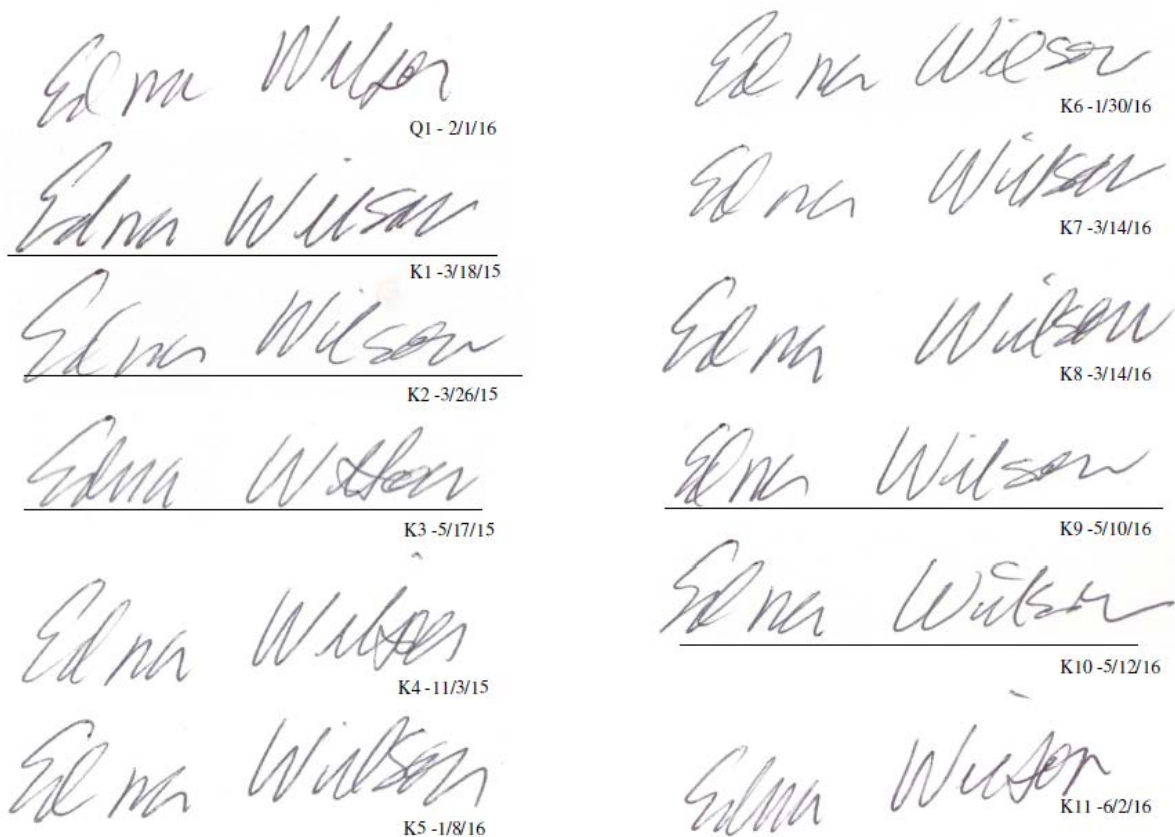 Edna Wilson
Q1 - 2/1/16
Edna Wilson
K1 -3/18/15
Edna Wilson
K2 -3/26/15
Edna Wilson
K3 -5/17/15
Edna Wilson
K4 -11/3/15
Edna Wilson
K5 -1/8/16
Edna Wilson
K6 -1/30/16
Edna Wilson
K7 -3/14/16
Edna Wilson
K8 -3/14/16
Edna Wilson
K9 -5/10/16
Edna Wilson
K10 -5/12/16
Edna Wilson
K11 -6/2/16